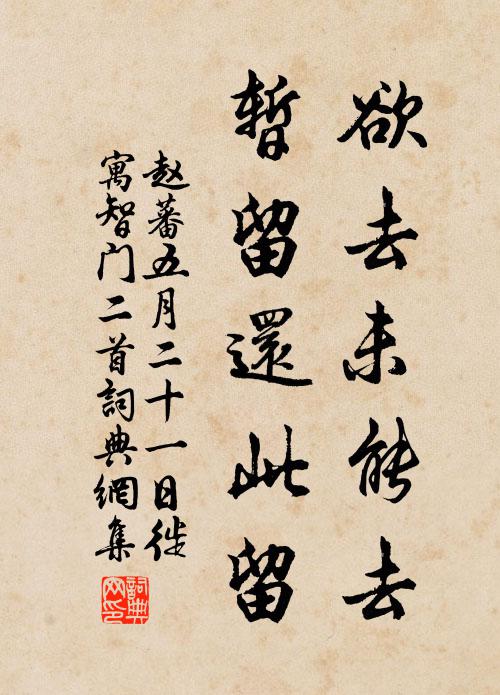 欲去未能去
暫留還此留
赵蕃五月二十一日徙
寓智门二首詞典網集
詞典
网印